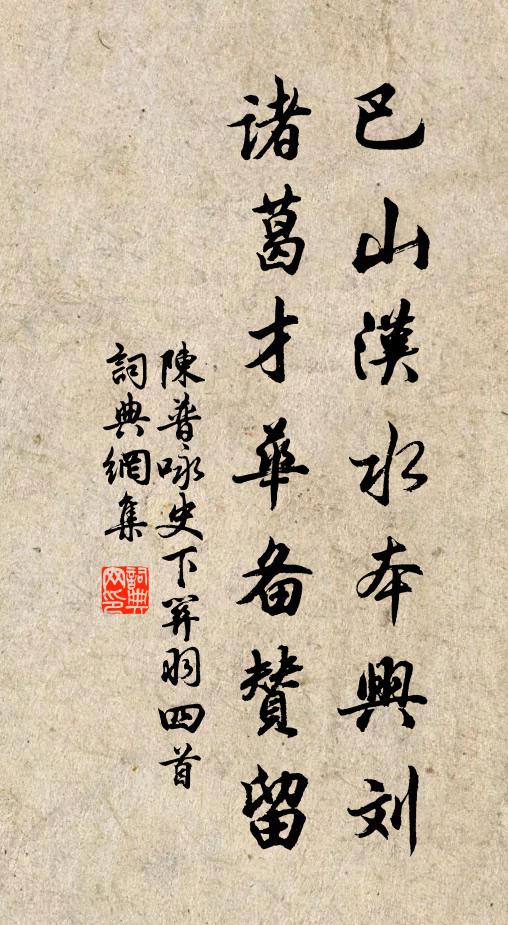 巴山漢水本興刘
诸葛才華备賛留
陳普咏史下關羽四首
詞典網集
詞典网印